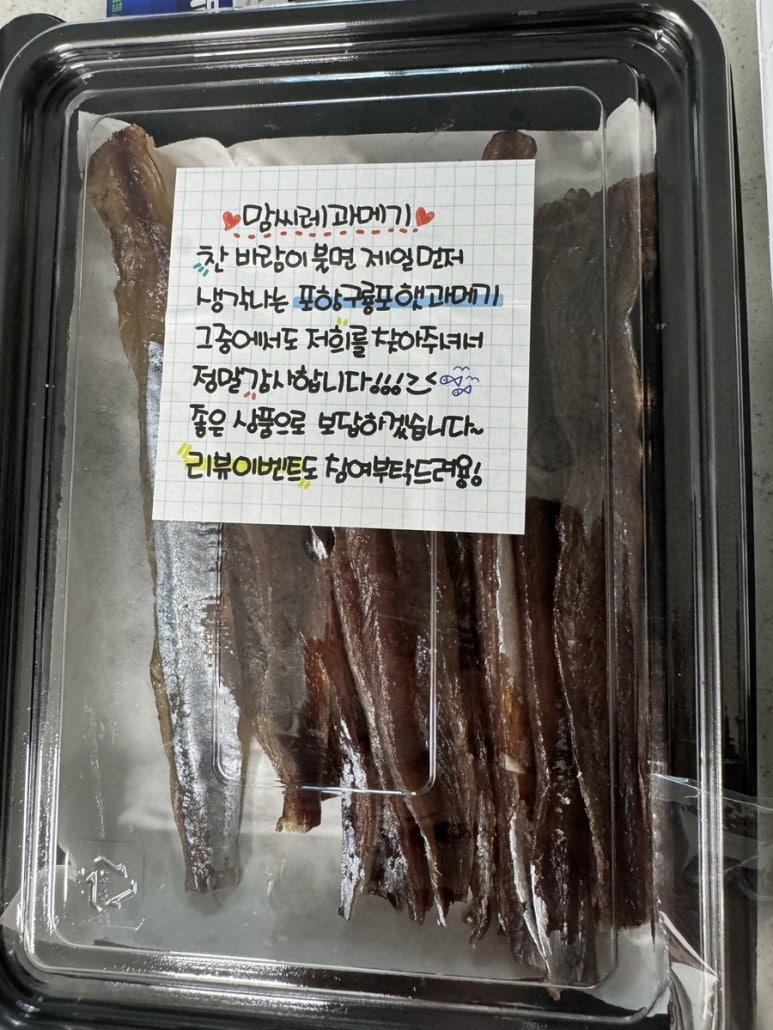 맘씨레과메기
찬 바람이 불면 제일먼저
생각나는 포항구룡포햇과메기
그중에서도 저희를 찾아주셔서
정말감사합니다!!!><
좋은 상품으로 보답하겠습니다~
리뷰이벤트도 참여부탁드려용!